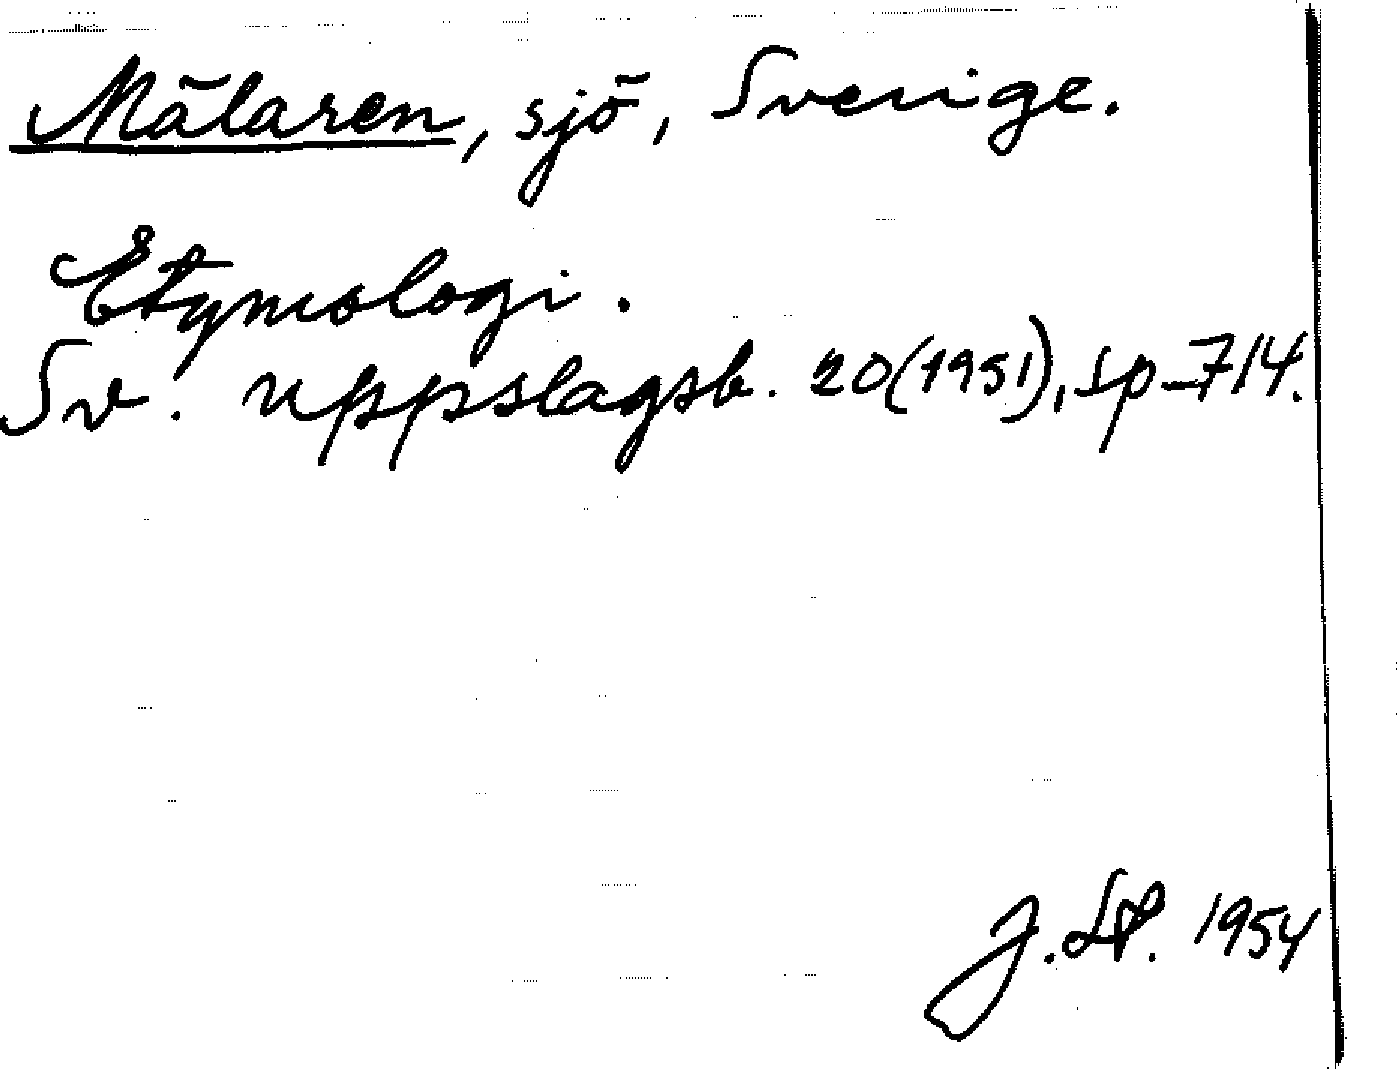 Mälaren, sjö, Sverige.
Etymologi.
Sv. uppslagsb. 20(1951), sp. 714.
J. St. 1954